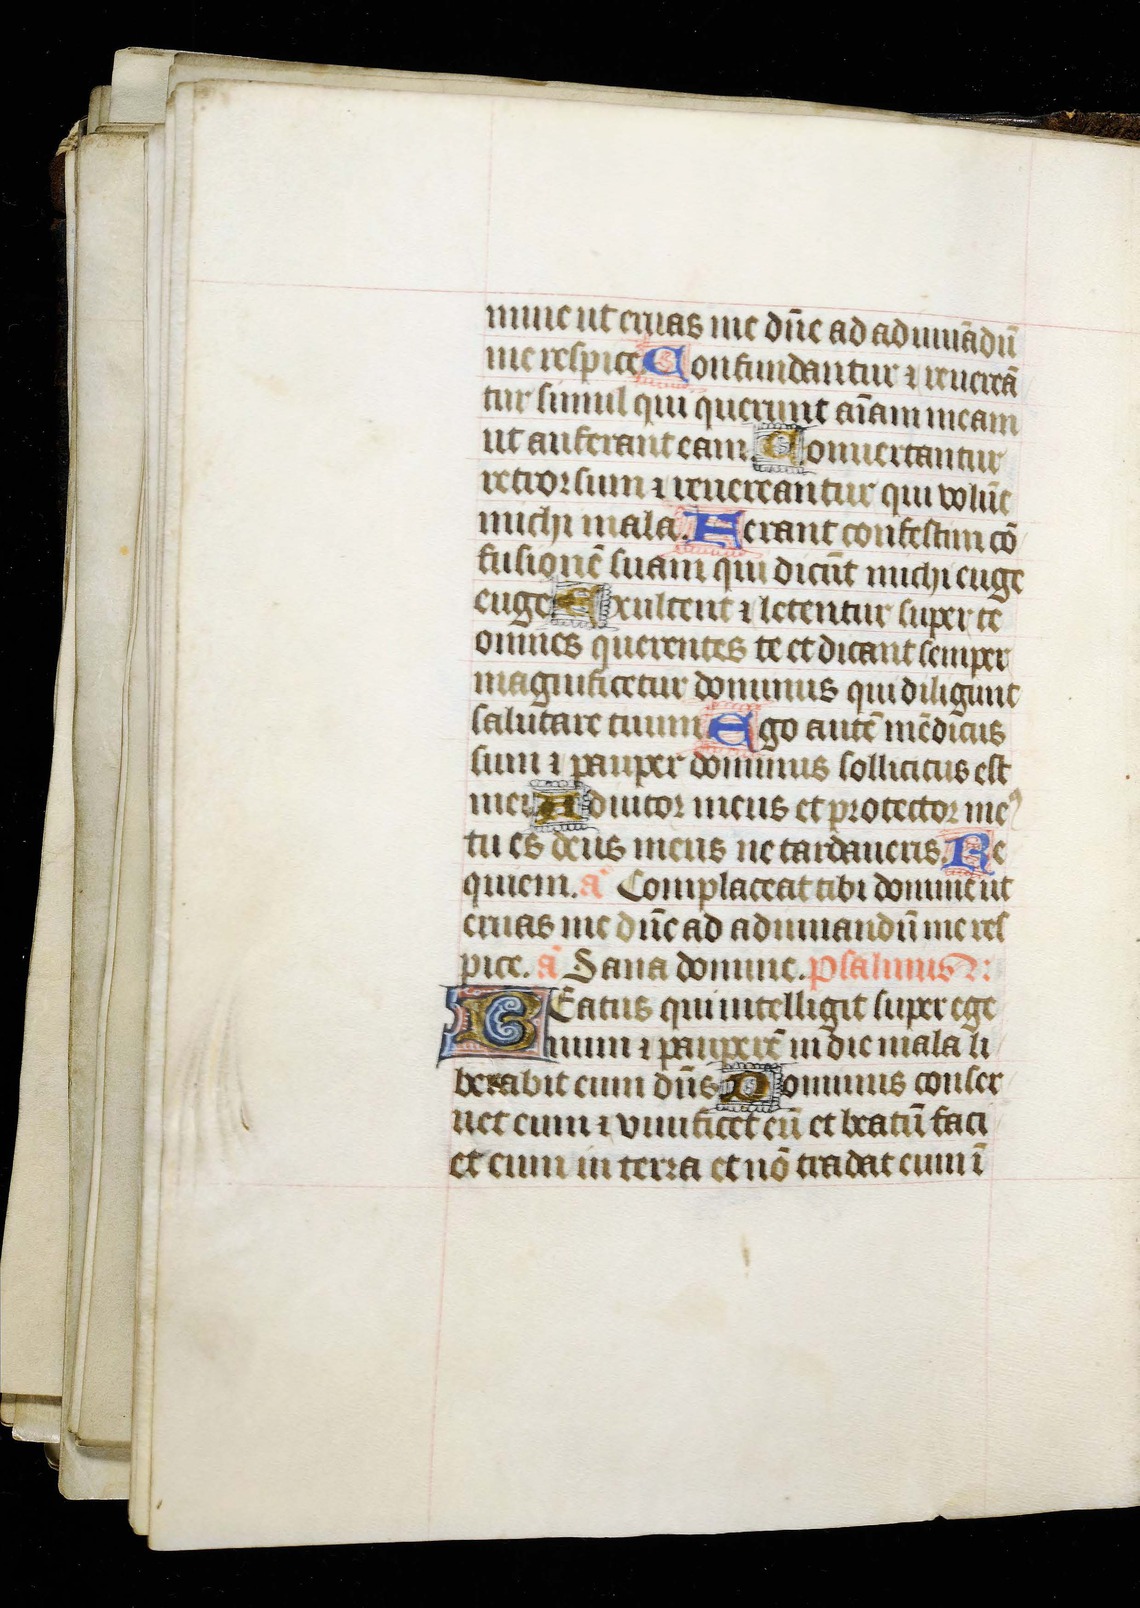 mine ut eruas me dn̄e ad adiuuādū
me respice Confundantur ⁊ reuereā
tur simul qui querunt aīam meam
ut auferant eam. Conuertantur
retrorsum ⁊ reuereantur qui volūt
michi mala. Ferant confestim cō
fusionē suam qui dicūt michi euge
euge Exultent ⁊ letentur super te
omnes querentes te et dicant semper
magnificetur dominus qui diligunt
salutare tuum Ego autē mēdicus
sum ⁊ pauper dominus sollicitus est
mei Adiutor meus et protector meꝰ
tu es deus meus ne tardaueris. Re
quiem. a Complaceat tibi domine ut
eruas me dūe ad adiuuandū me res
pice. a Sana domine. psalmus
BEatus qui intelligit super ege
num ⁊ pauperē in die mala li
berabit eum dn̄s Dominus conser
uet eum ⁊ viuificet eū et beatū faci
et eum in terra et nō tradat eum ī